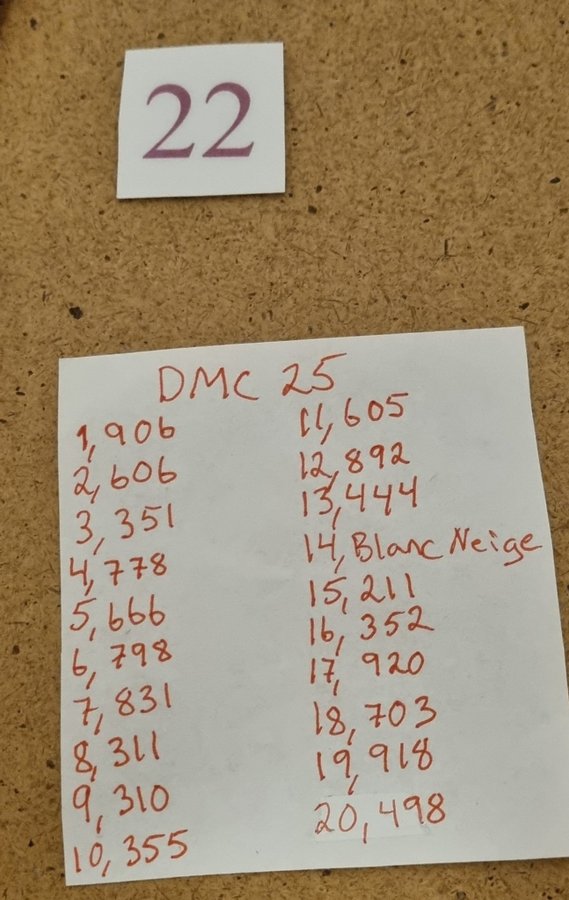 22
DMC 25
1,906
2,606
3,351
4,778
5,666
6,798
7,831
8,311
9,310
10,355
11,605
12,892
13,444
14, Blanc Neige
15,211
16, 352
17, 920
18,703
19,918
20,498